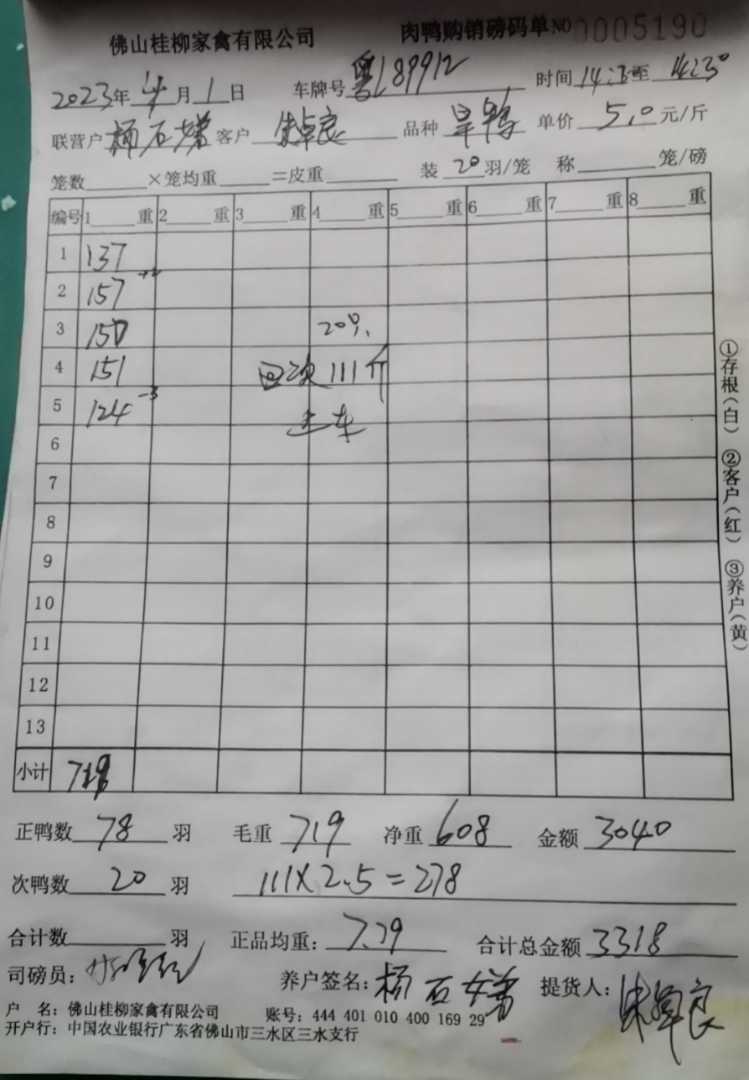 佛山桂柳家禽有限公司 肉鸭购销磅码单 NO 0005190
2023年 4月 1日 车牌号 粤L89912 时间 至 14:30
联营户 杨石娣 客户 朱卓良 品种 旱鸭 单价 5.0 元/斤
笼数 ×笼均重 =皮重 装 20 羽/笼 称 笼/磅
编号 1 重 2 重 3 重 4 重 5 重 6 重 7 重 8 重
1 137
2 157 +2
3 150 20只
4 151 次 111斤
5 124 -3 车
6
7
8
9
10
11
12
13
小计 719
正鸭数 78 羽 毛重 719 净重 608 金额 3040
次鸭数 20 羽 111×2.5=278
合计数 羽 正品均重: 7.79 合计总金额 3318
司磅员: 养户签名: 杨石娣 提货人: 朱卓良
户 名: 佛山桂柳家禽有限公司 账号: 444 401 010 400 169 29
开户行: 中国农业银行广东省佛山市三水区三水支行
①存根(白) ②客户(红) ③养户(黄)